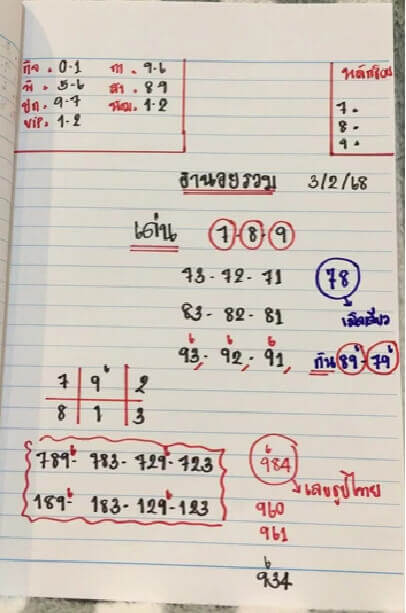 กิจ. 0-1 กา. 9-6
พี. 5-6 สำ. 89
ปก. 9-7 พัฒ. 1-2
VIP. 1-2
หลักร้อย
7-
8-
9-
ฮานอยรวม 3/2/68
เด่น 7-8-9
73-72-71 78
83-82-81 เม็ดเดียว
93-92-91 กัน 89-79
7 9 2
8 1 3
789-783-729-723
189-183-129-123
984
เลขรูปไทย
960
961
934